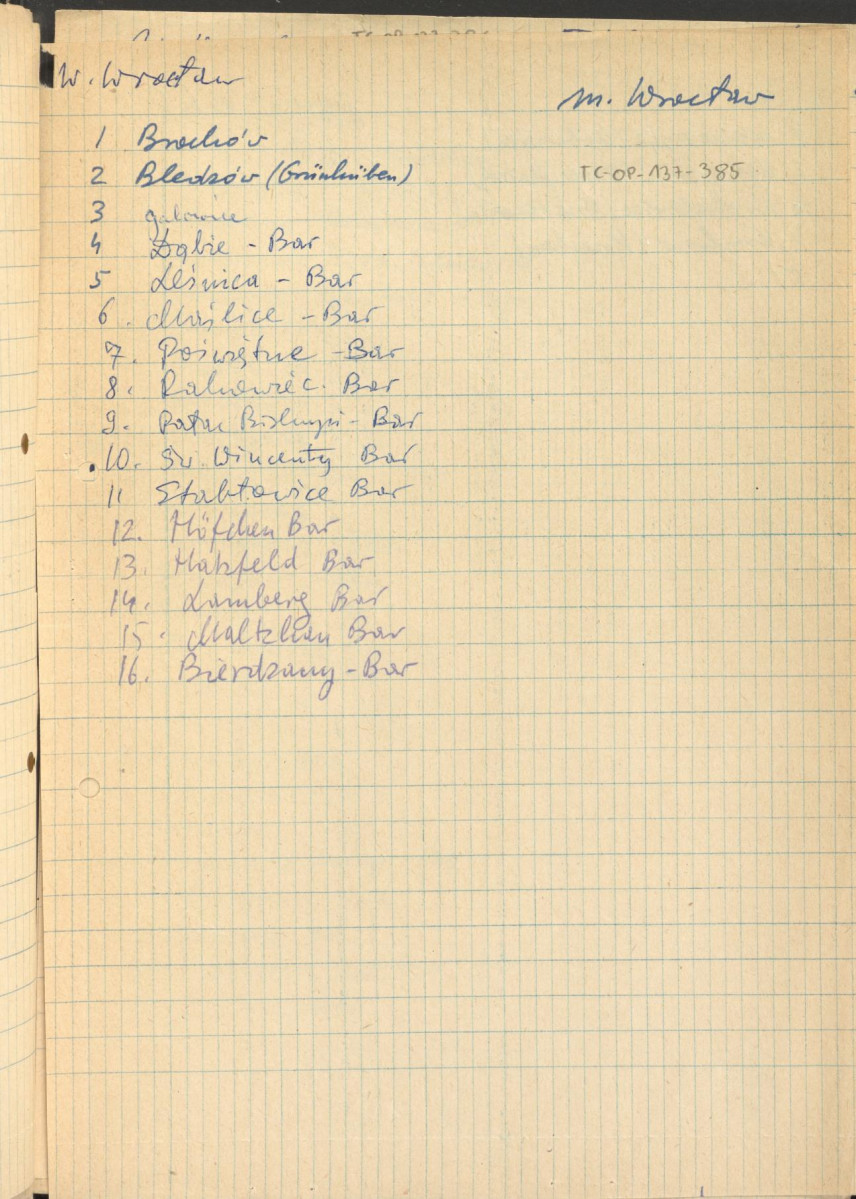 W. Wrocław
m. Wrocław
1 Brochów
2 Bledzów (Grünhüben)
TC-OP-137-385
3 galowice
4 Dąbie - Bar
5 Leśnica - Bar
6. Maślice - Bar
7. Poświętne - Bar
8. Rakowiec. Bar
9. Pałac Biskupi - Bar
10. Św. Wincenty Bar
11 Stabłowice Bar
12. Höfchen Bar
13. Hatzfeld Bar
14. Lamberg Bar
15. Maltzhan Bar
16. Bierdzany - Bar